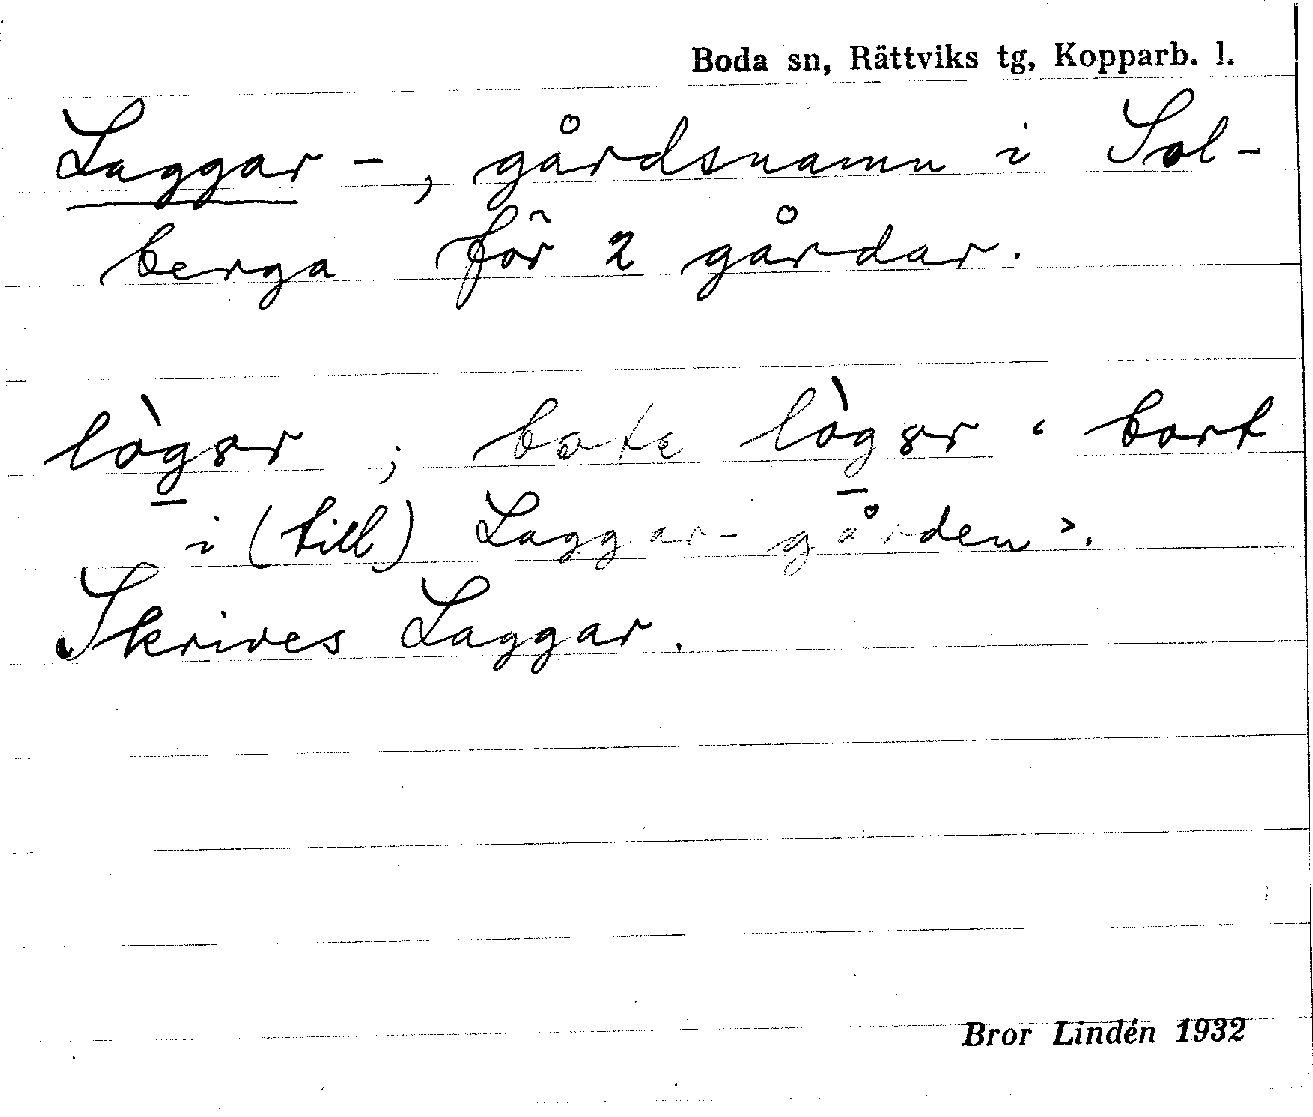 Boda sn, Rättviks tg, Kopparb. l.
Laggar -, gårdsnamn i Sol-
berga för 2 gårdar.
lògər ; bote lògər ‘bort
i (till) Laggar-gården’.
Skrives Laggar.
Bror Lindén 1932